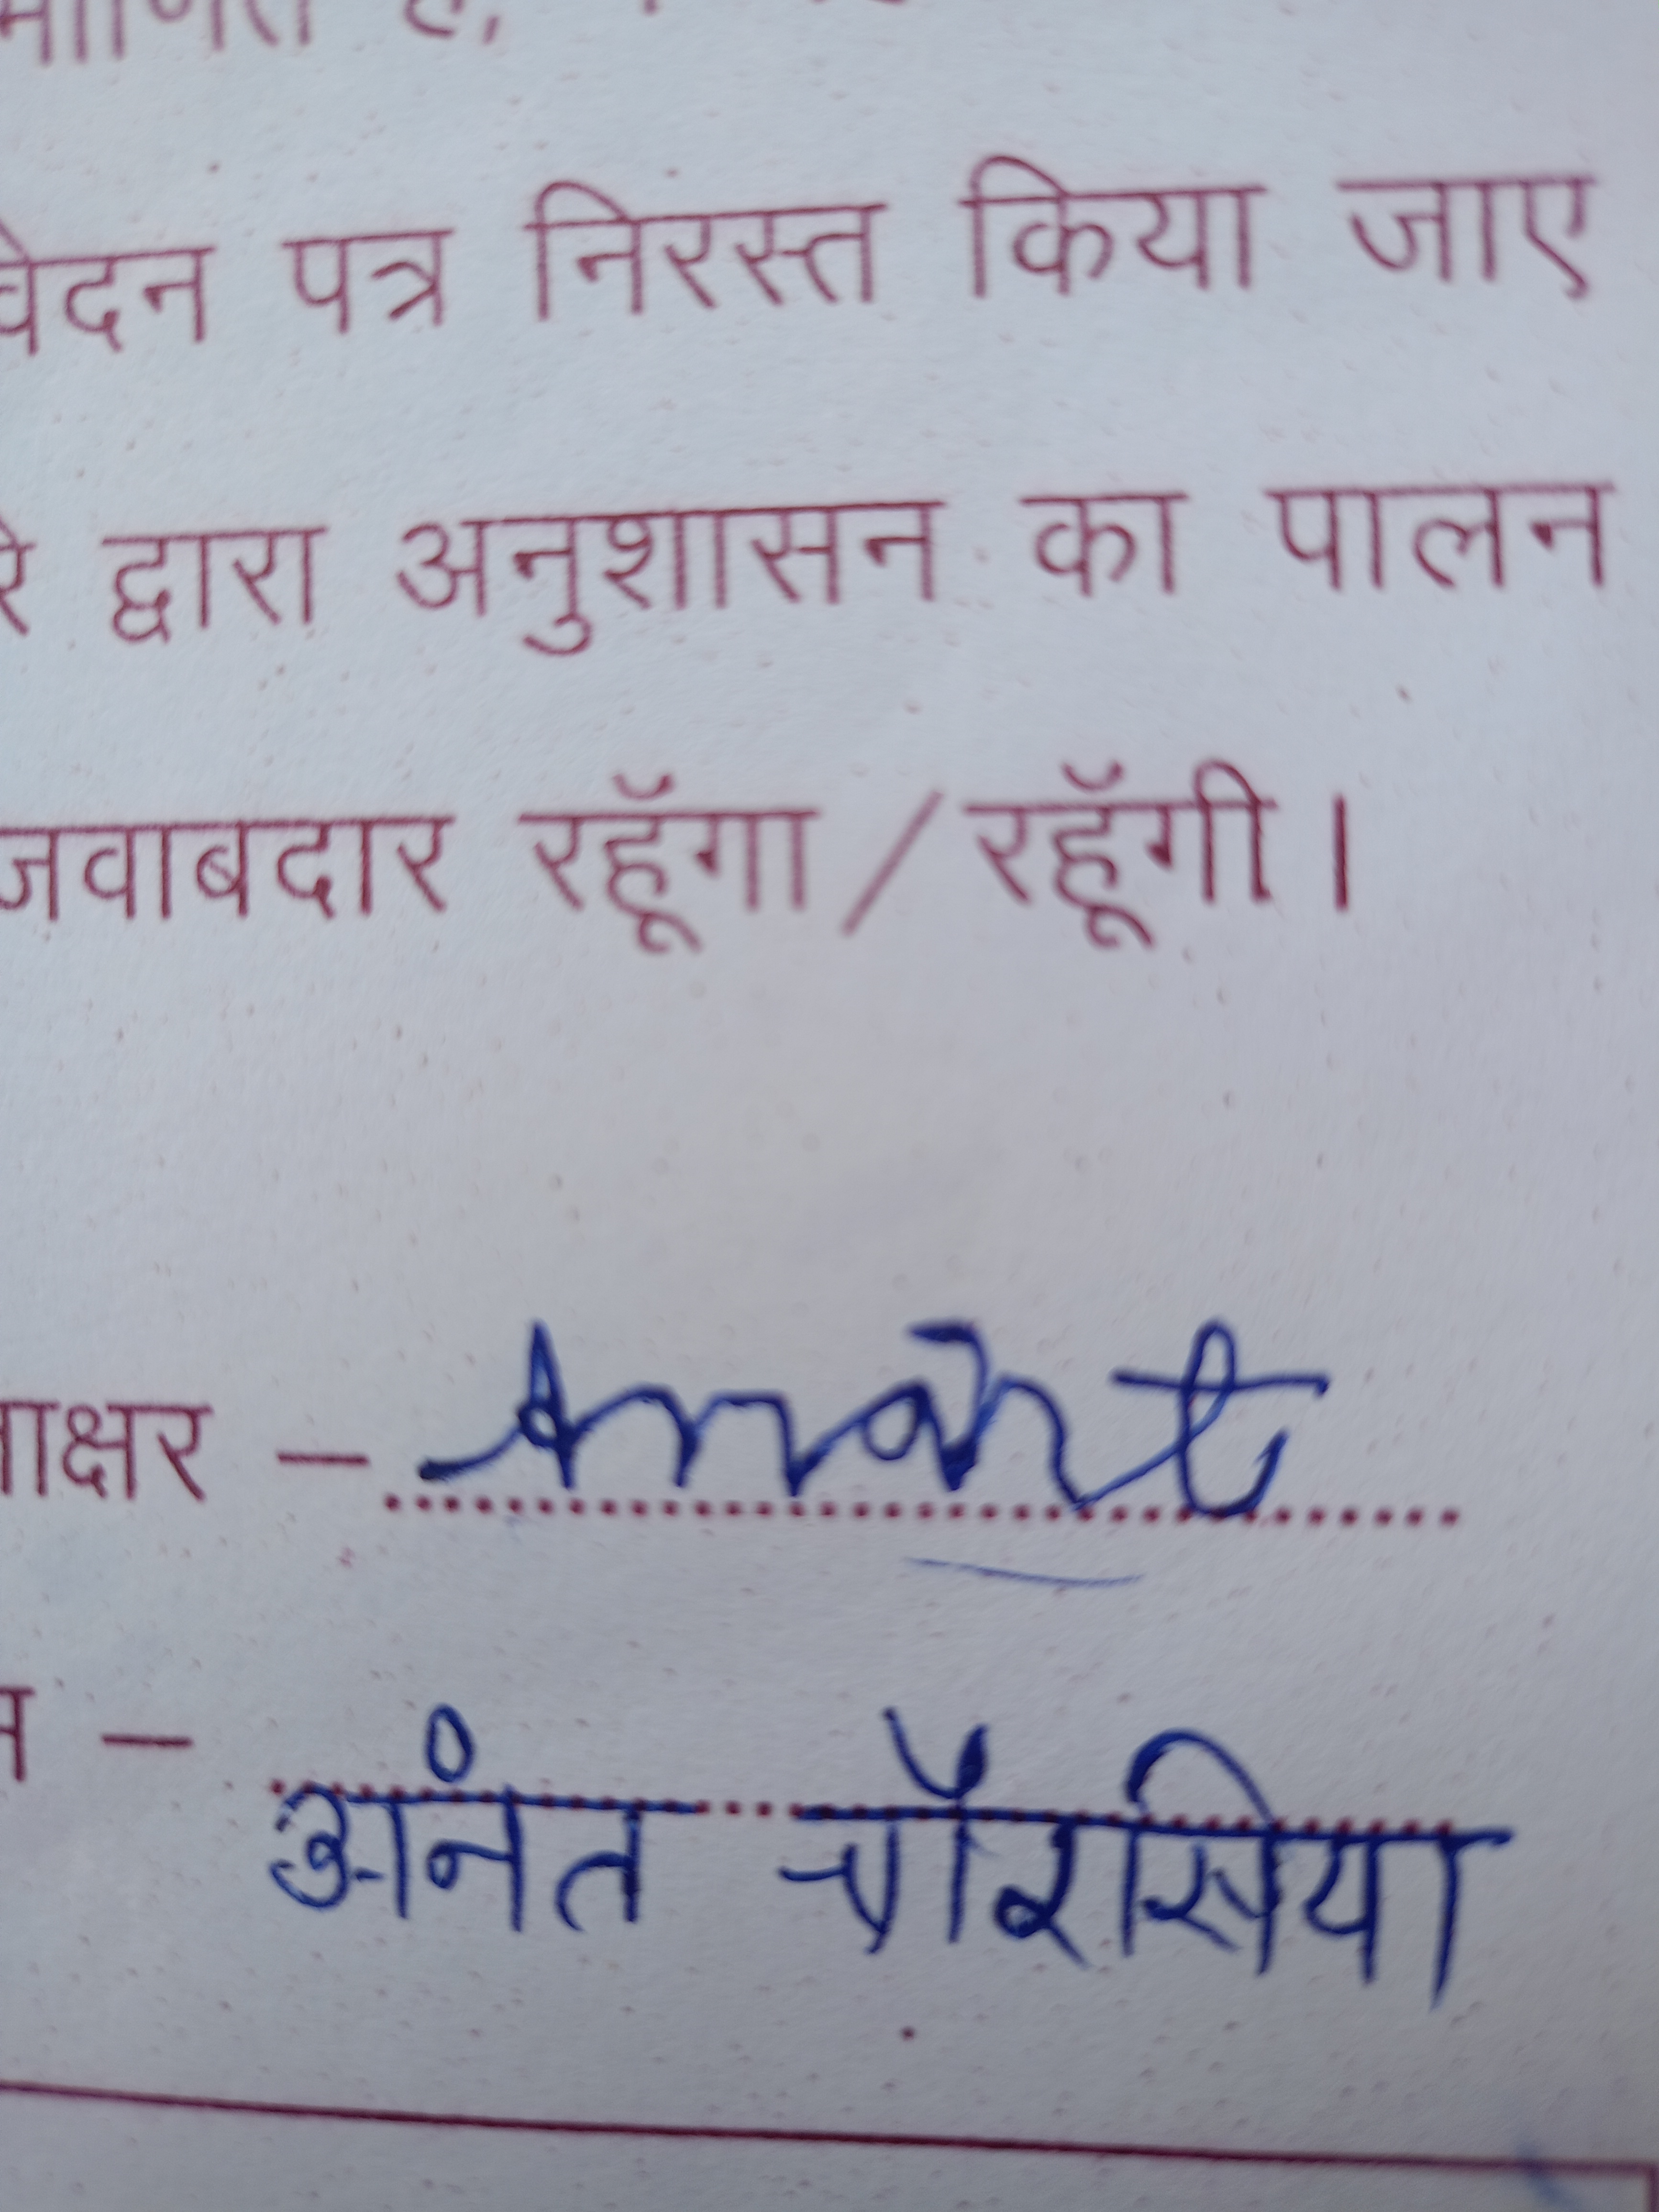 वेदन पत्र निरस्त किया जाए
रे द्वारा अनुशासन का पालन
जवाबदार रहूॅगा/रहूॅगी।
ाक्षर – Anant
म – अंनत चौरसिया